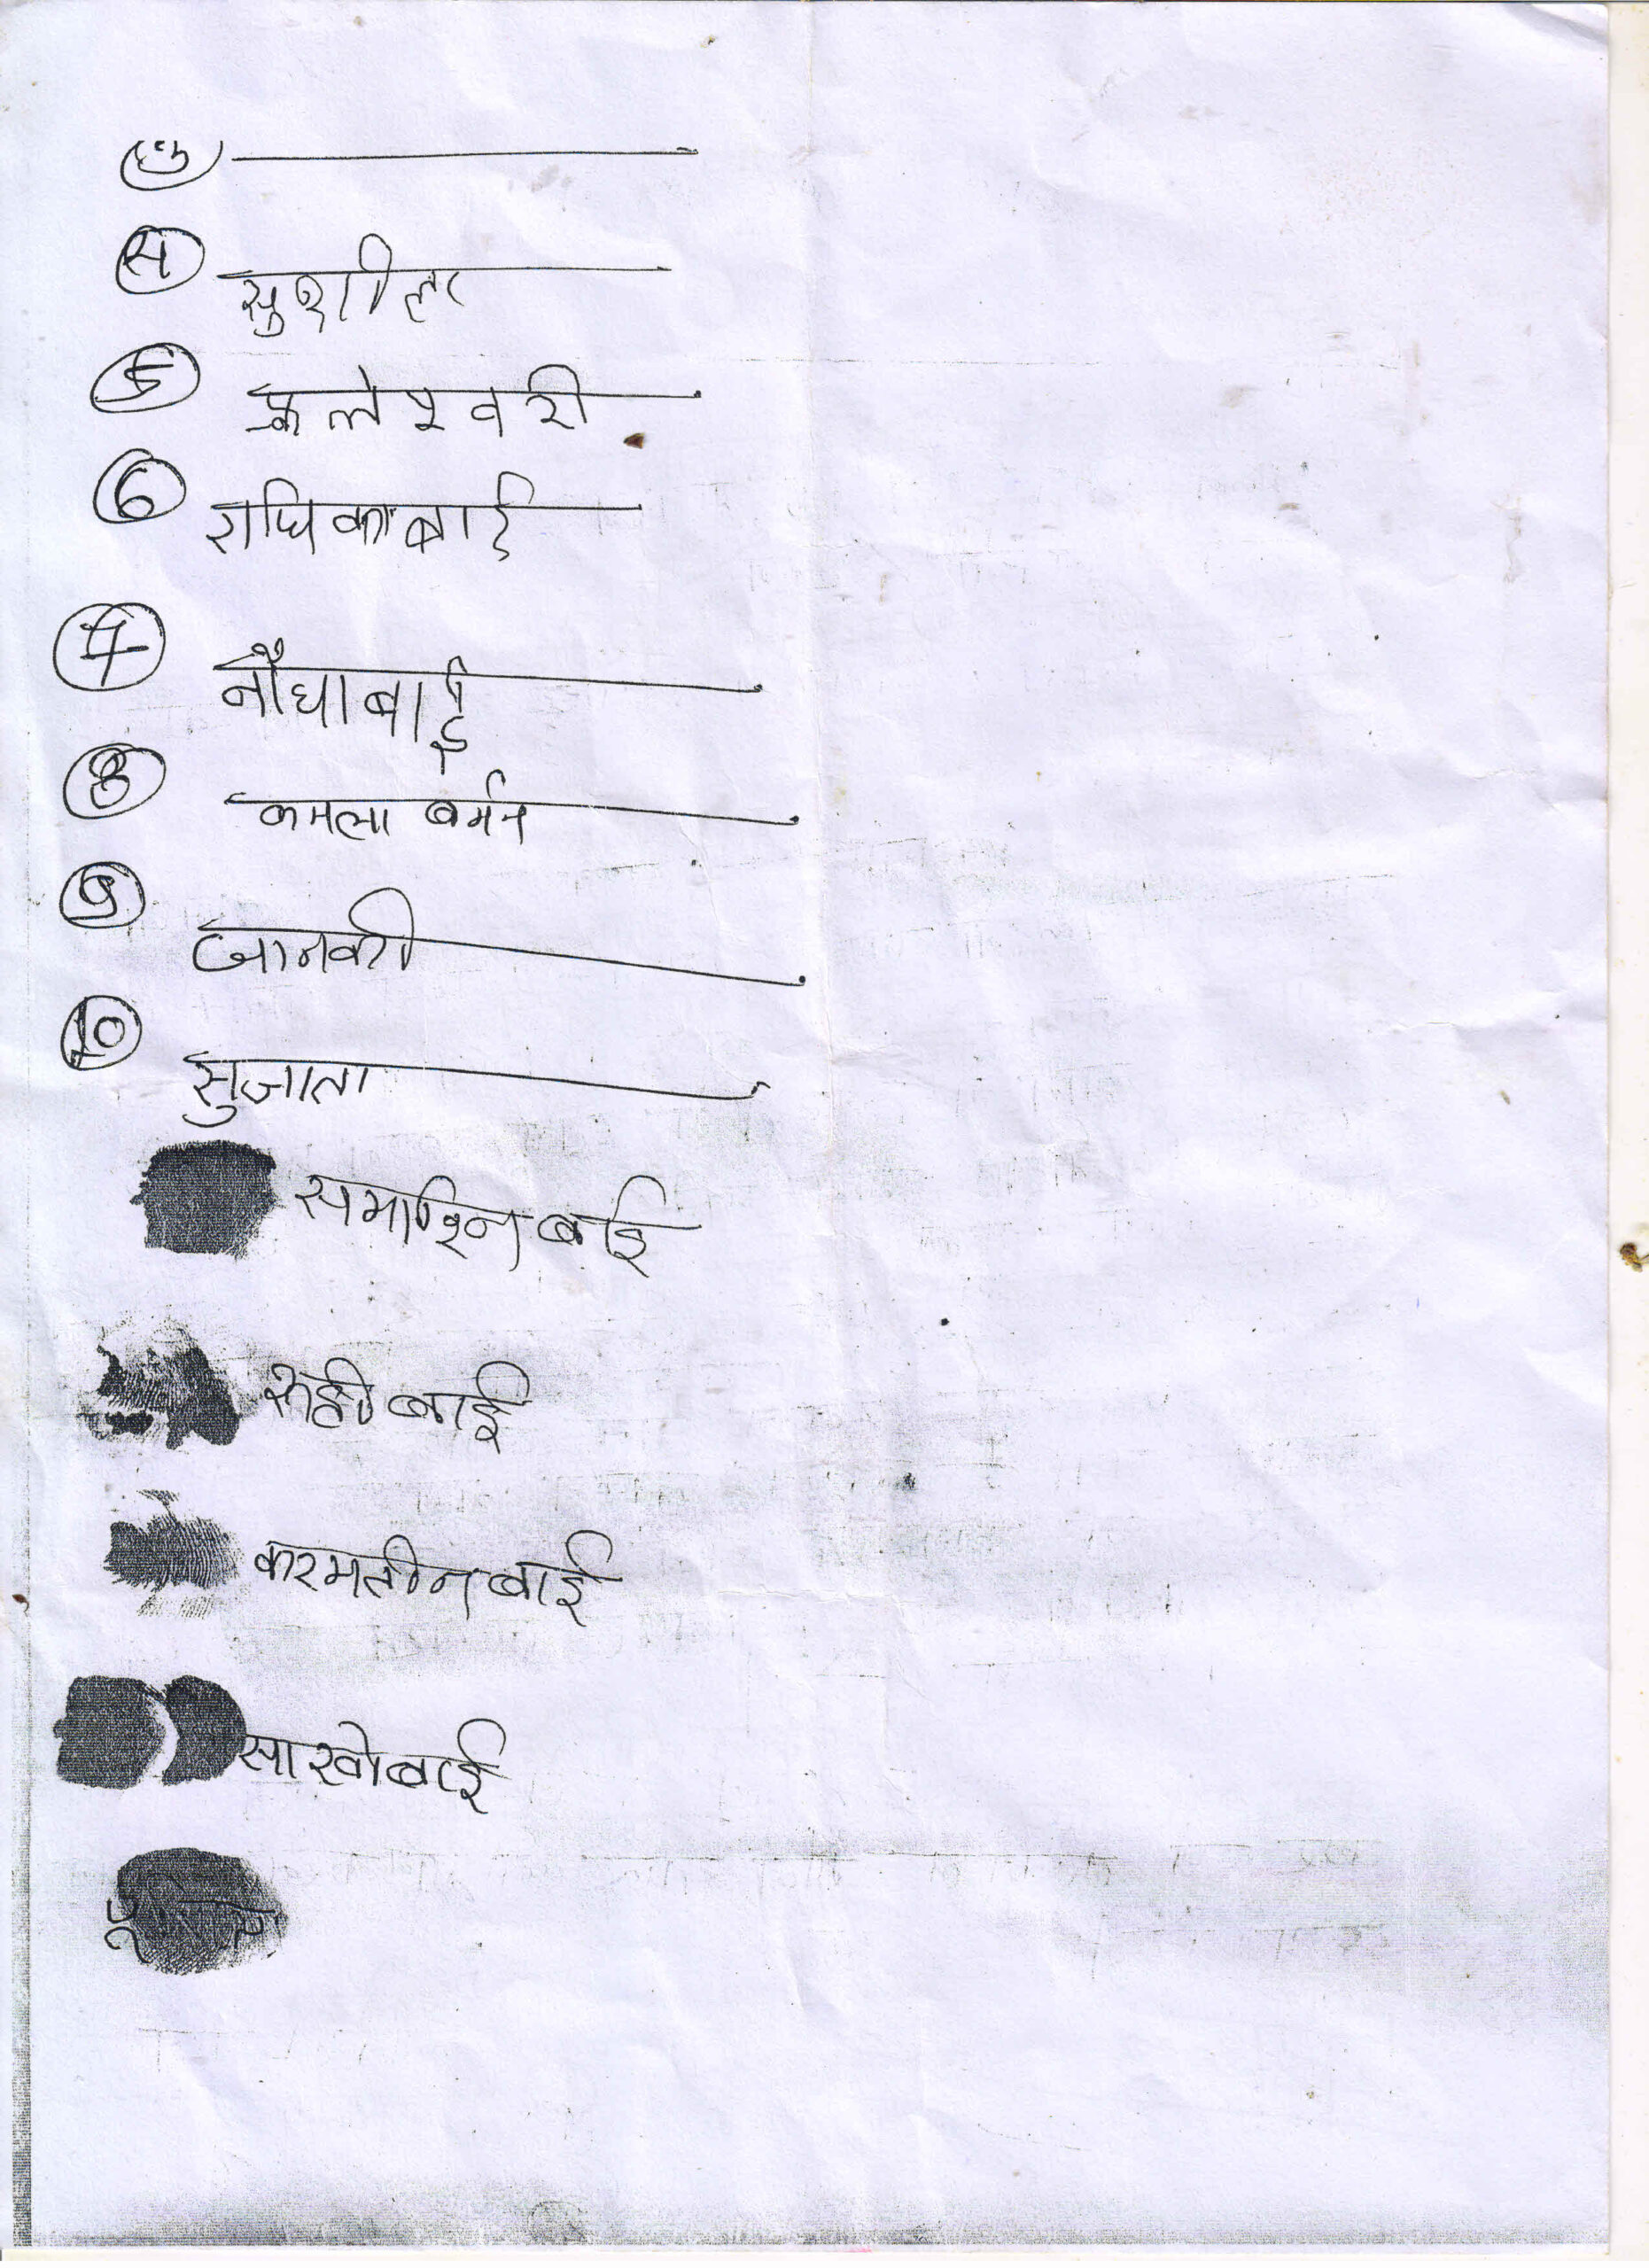 ③
④ सुशीला
⑤ फुलेश्वरी
⑥ राधिका बाई
⑦ नौधा बाई
⑧ कमला बर्मन
⑨ जानकी
⑩ सुजाता
समारिन बाई
बाई
करमतीन बाई
साखो बाई